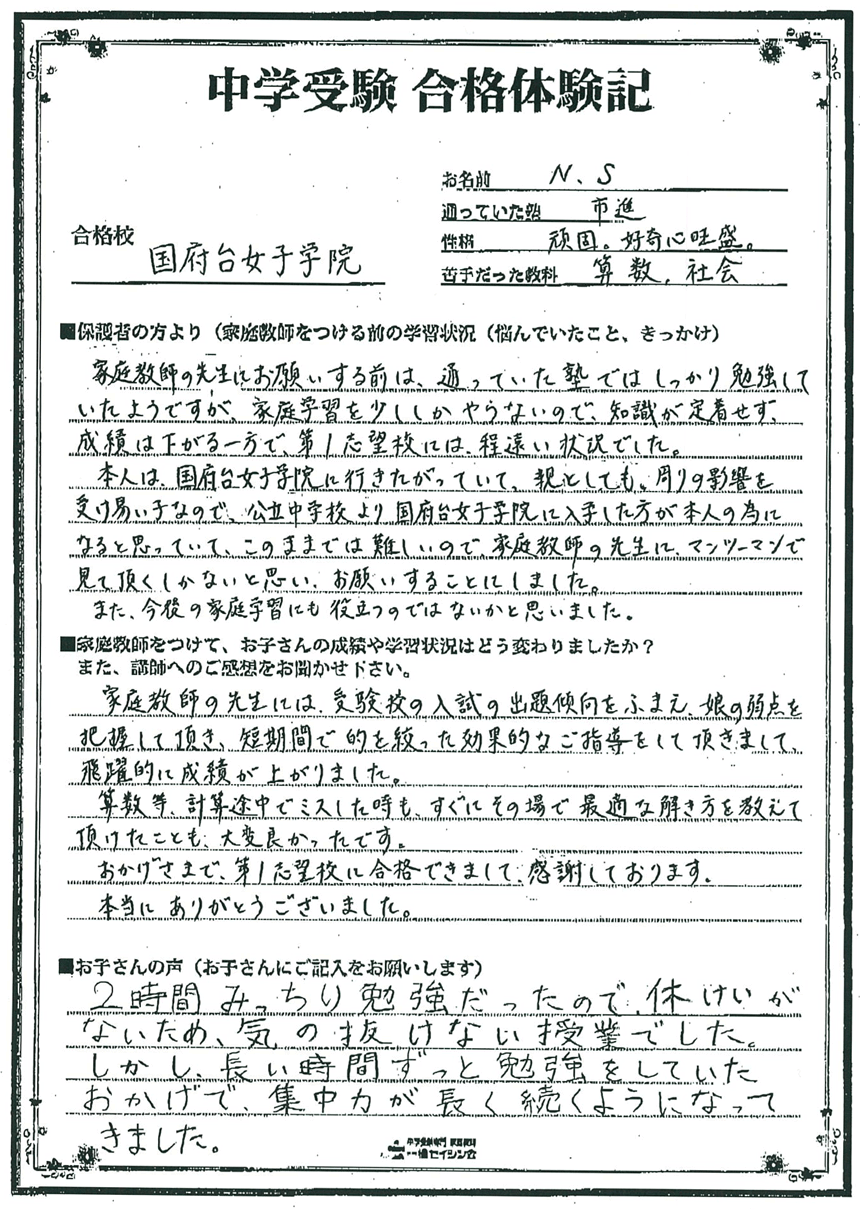 中学受験 合格体験記
お名前 N、S
通っていた塾 市進
合格校 国府台女子学院
性格 頑固。好奇心旺盛。
苦手だった教科 算数、社会
■保護者の方より（家庭教師をつける前の学習状況（悩んでいたこと、きっかけ）
家庭教師の先生にお願いする前は、通っていた塾ではしっかり勉強して
いたようですが、家庭学習を少ししかやらないので、知識が定着せず、
成績は下がる一方で、第1志望校には、程遠い状況でした。
本人は、国府台女子学院に行きたがっていて、親としても、周りの影響を
受け易い子なので、公立中学校より国府台女子学院に入学した方が本人の為に
なると思っていて、このままでは難しいので、家庭教師の先生に、マンツーマンで
見て頂くしかないと思い、お願いすることにしました。
また、今後の家庭学習にも役立つのではないかと思いました。
■家庭教師をつけて、お子さんの成績や学習状況はどう変わりましたか？
また、講師へのご感想をお聞かせ下さい。
家庭教師の先生には、受験校の入試の出題傾向をふまえ、娘の弱点を
把握して頂き、短期間で的を絞った効果的なご指導をして頂きまして、
飛躍的に成績が上がりました。
算数等、計算途中でミスした時も、すぐにその場で最適な解き方を教えて
頂けたことも、大変良かったです。
おかげさまで、第1志望校に合格できまして、感謝しております。
本当にありがとうございました。
■お子さんの声（お子さんにご記入をお願いします）
2時間みっちり勉強だったので、休けいが
ないため、気の抜けない授業でした。
しかし、長い時間ずっと勉強をしていた
おかげで、集中力が長く続くようになって
きました。
中学受験専門 家庭教師
一橋セイシン会